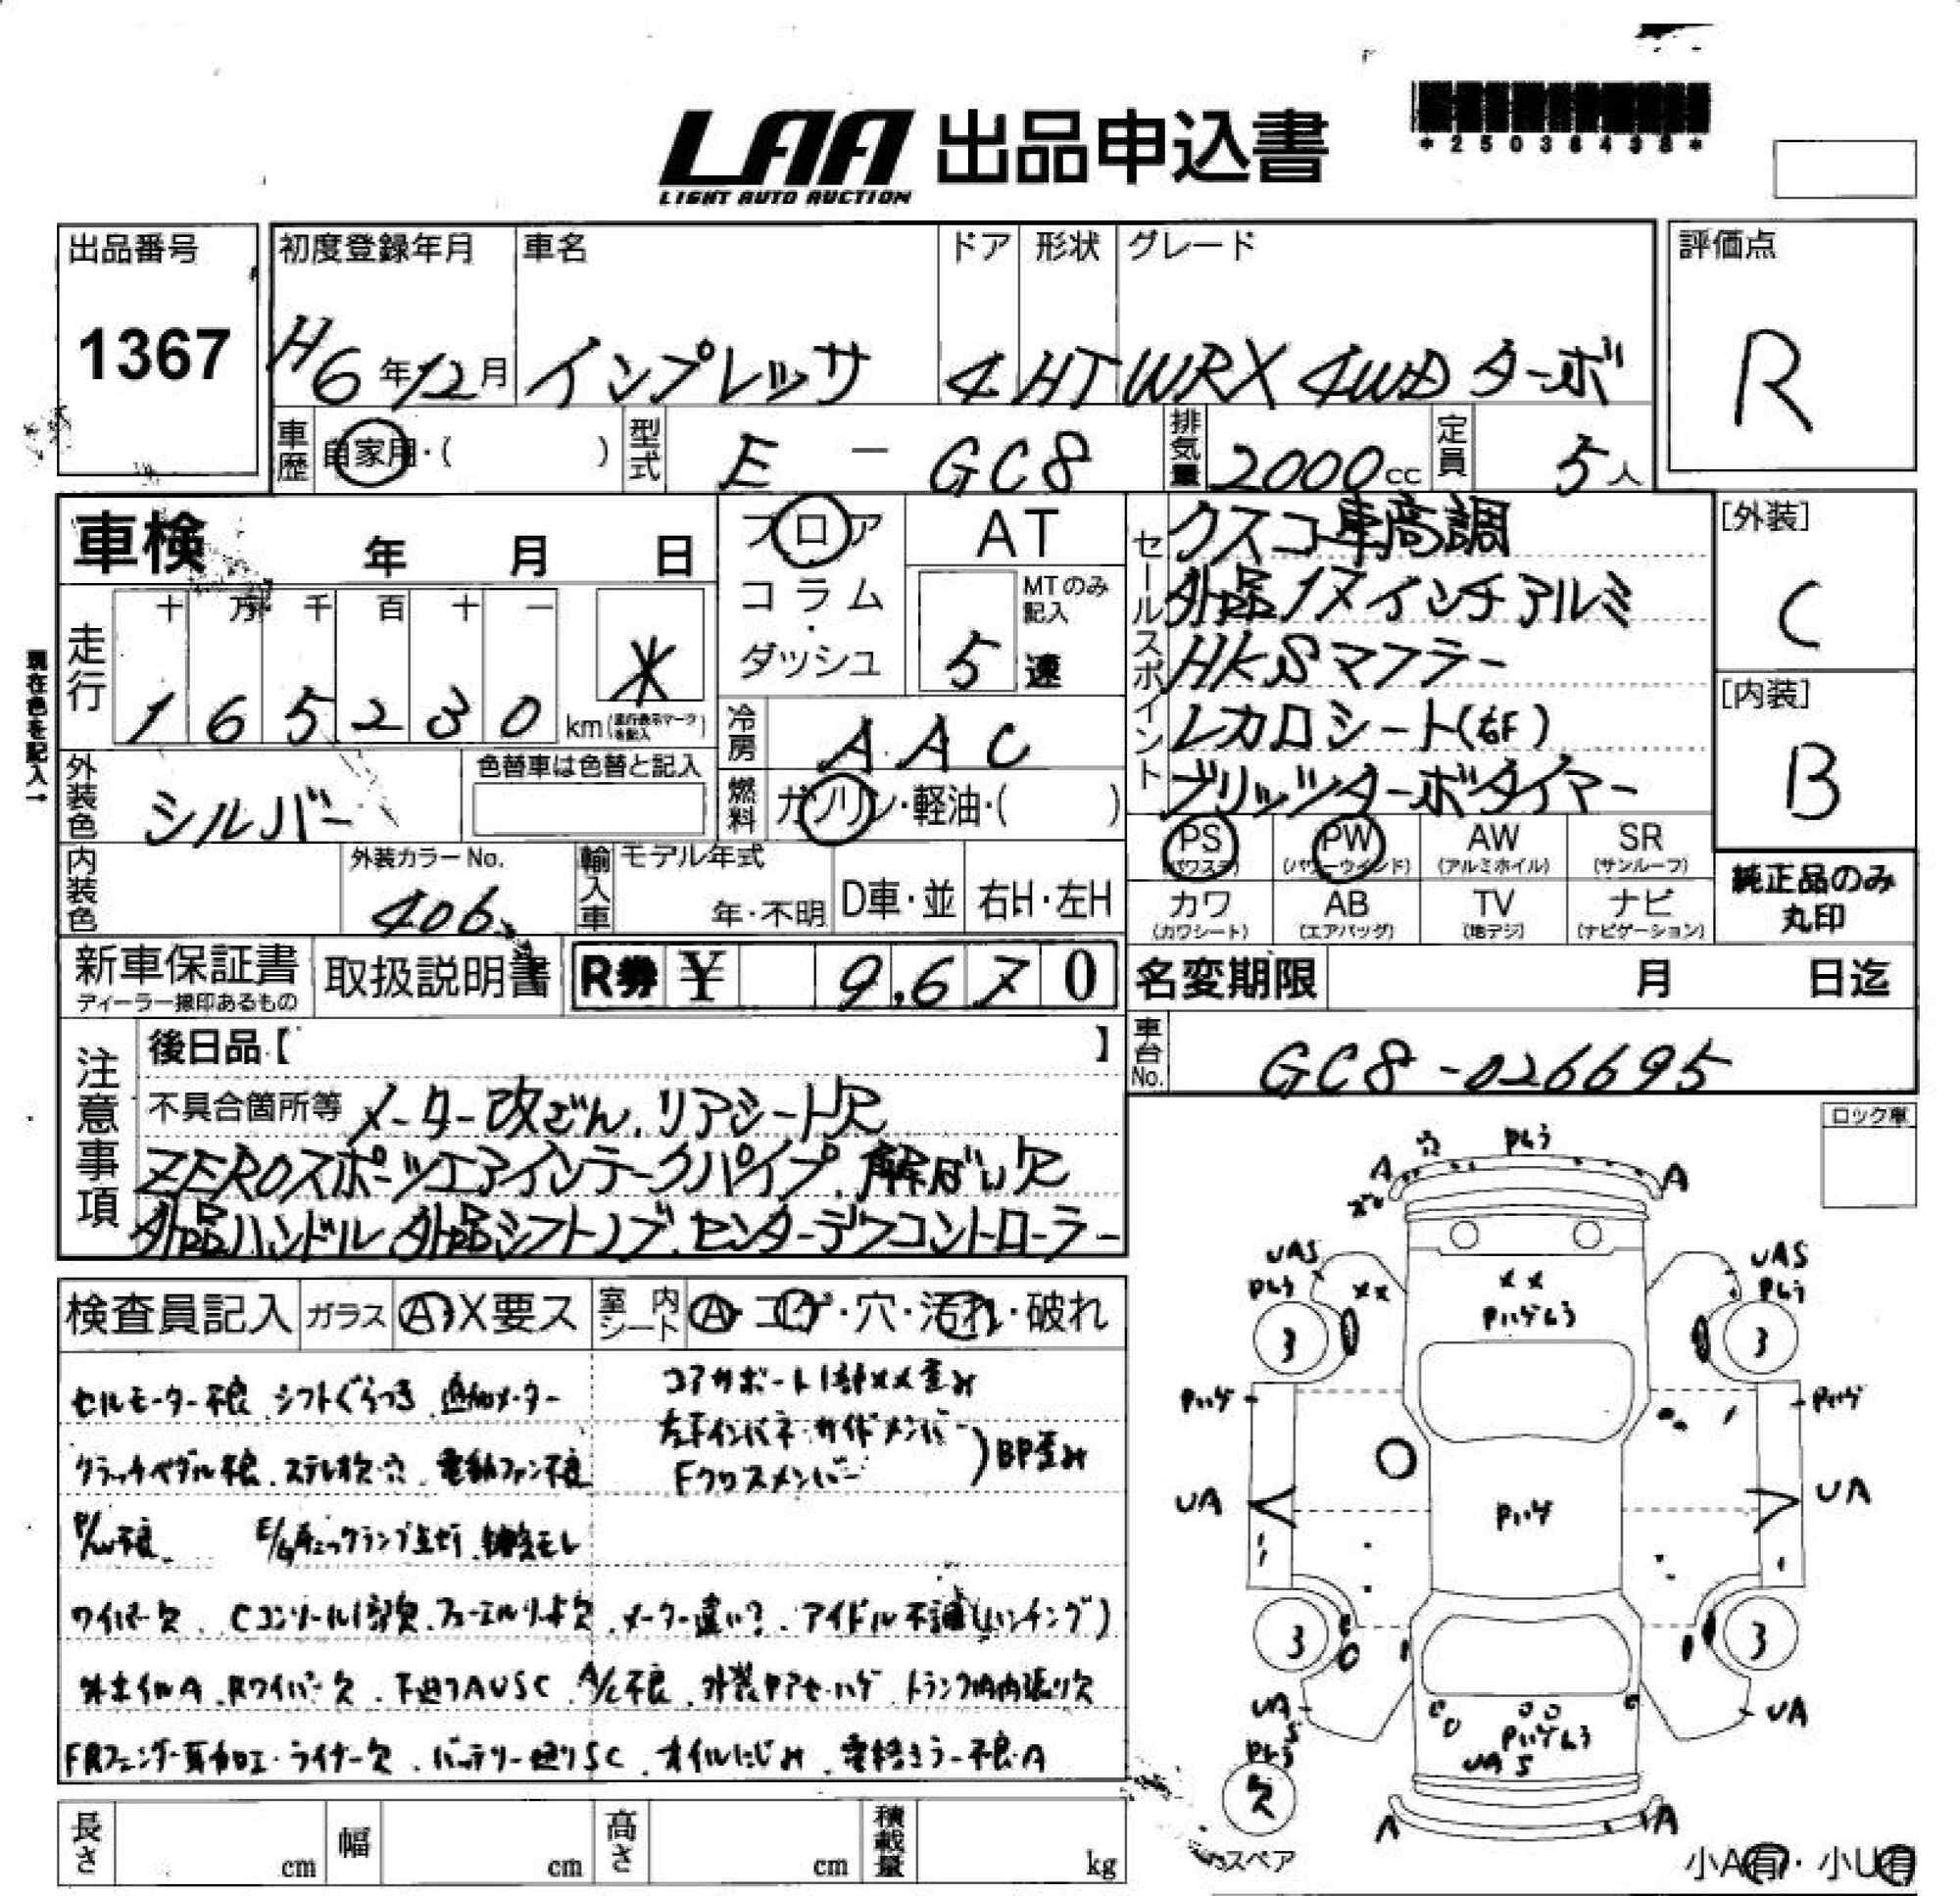 *25036438*
LAA 出品申込書
LIGHT AUTO AUCTION
出品番号
1367
初度登録年月
H6年12月
車名
インプレッサ
ドア
4
形状
HT
グレード
WRX 4WD ターボ
評価点
R
車歴
自家用・( )
型式
E - GC8
排気量
2000cc
定員
5人
車検 年 月 日
フロア
コラム・
ダッシュ
AT
MTのみ記入
5速
セールスポイント
クスコ車高調
外品17インチアルミ
HKSマフラー
レカロシート(右F)
ブリッツターボタイマー
[外装]
C
[内装]
B
現在色を記入→
走行
十 万 千 百 十 一
1 6 5 2 3 0 km (走行表示マークを記入)
*
冷房
AAC
外装色
シルバー
色替車は色替と記入
燃料
ガソリン・軽油・( )
PS (パワステ)
PW (パワーウインド)
AW (アルミホイル)
SR (サンルーフ)
カワ (カワシート)
AB (エアバッグ)
TV (地デジ)
ナビ (ナビゲーション)
純正品のみ
丸印
内装色
外装カラーNo.
406
輸入車
モデル年式
年・不明
D車・並
右H・左H
新車保証書
ディーラー捺印あるもの
取扱説明書
R券 ¥ 9,670
名変期限 月 日迄
車台No.
GC8-026695
注意事項
後日品【 】
不具合箇所等 メーター改ざん、リアシート欠
ZEROスポーツエアインテークパイプ、解ばい欠
外品ハンドル、外品シフトノブ、センターデフコントローラー
ロック車
検査員記入
ガラス A・X要ス
室内シート A・コゲ・穴・汚れ・破れ
セルモーター不良、シフトぐらつき、追加メーター
コアサポート1部XX歪み
クラッチペダル不良、ステレオ欠・穴、電動ファン不良
左Fインパネ・サイドメンバー
Fクロスメンバー
)BP歪み
P/W不良、 E/Gチェックランプ点灯、排気モレ
ワイパー欠、Cコンソール1部欠、フューエルリッド欠、メーター違い?、アイドル不調(ハンチング)
外ホイルA、Rワイパー欠、下廻りAUSC、A/C不良、外装Pアセ・ハゲ、トランク内内張り欠
FRフェンダー耳加工・ライナー欠、バッテリー廻りSC、オイルにじみ、電格ミラー不良・A
Pムラ
A
A
UAS
Pムラ
XX
XX
Pハゲムラ
UAS
Pムラ
3
3
Pハゲ
Pハゲ
UA
Pハゲ
UA
3
3
UA
S
Pムラ
Pハゲムラ
UAS
UA
欠
スペア
A
A
小A有・小U有
長さ cm
幅 cm
高さ cm
積載量 kg